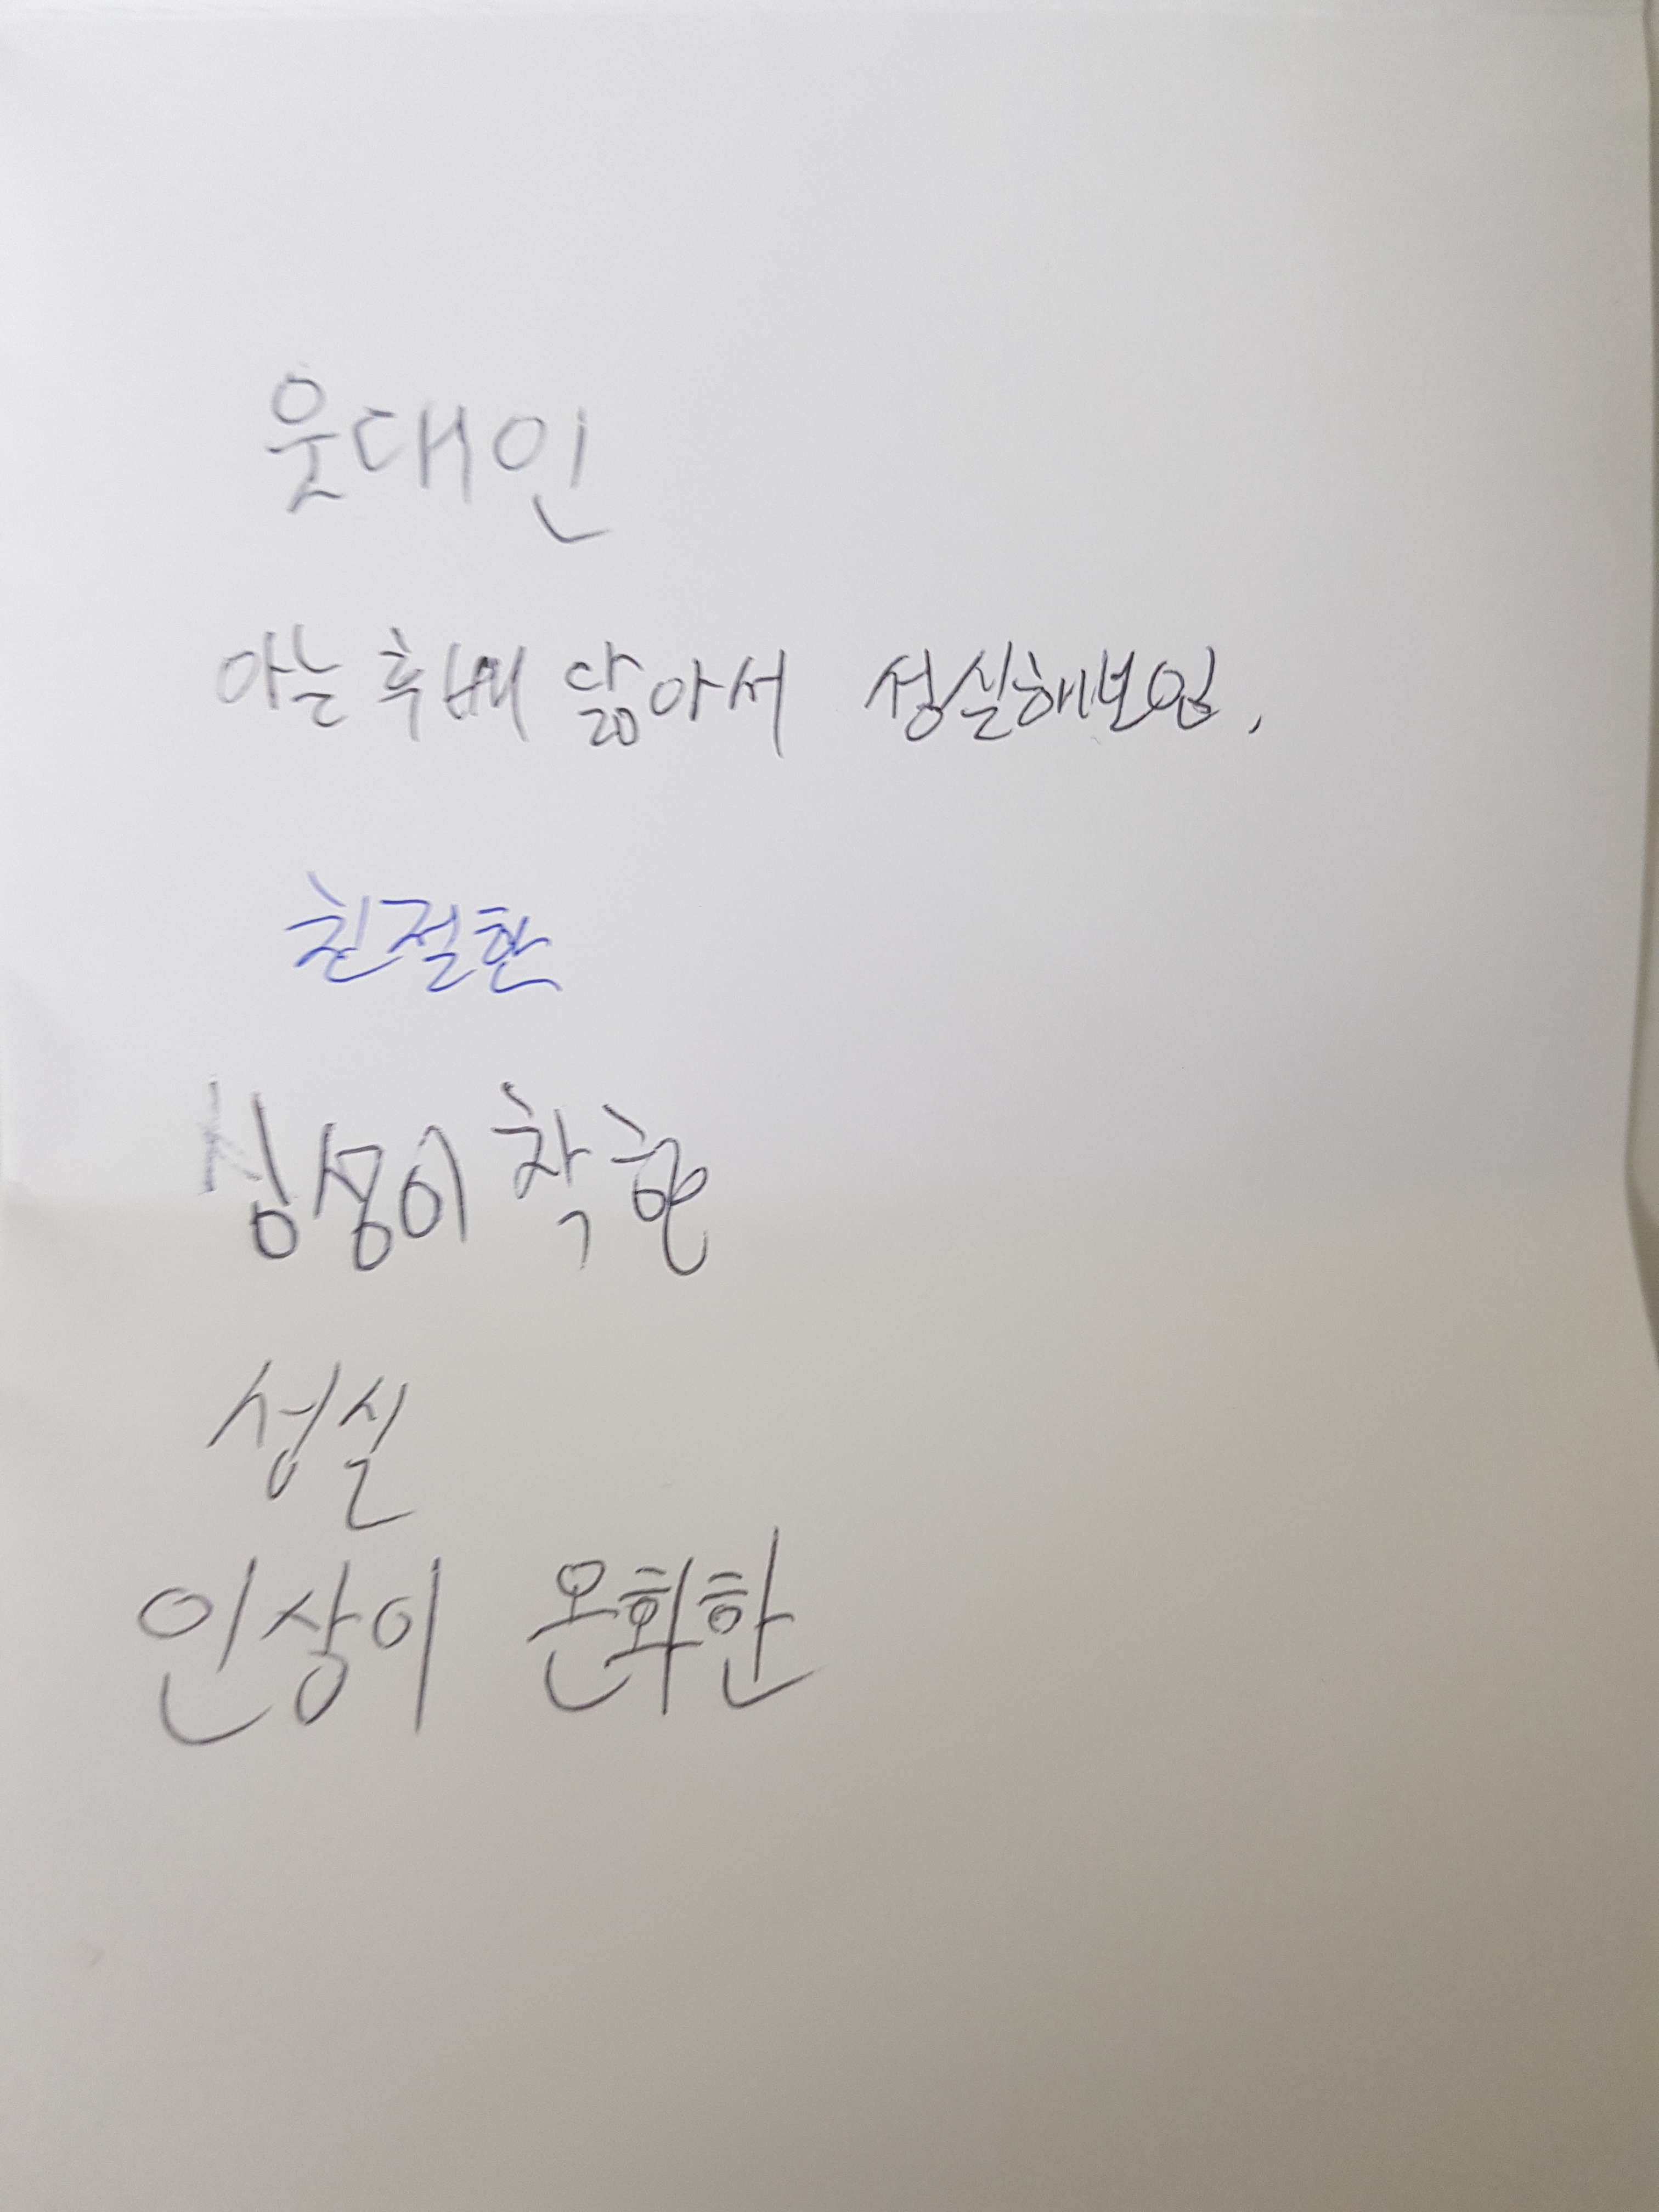 웃대인
아는 후배 닮아서 성실해보임.
친절한
심성이 착한
성실
인상이 온화한